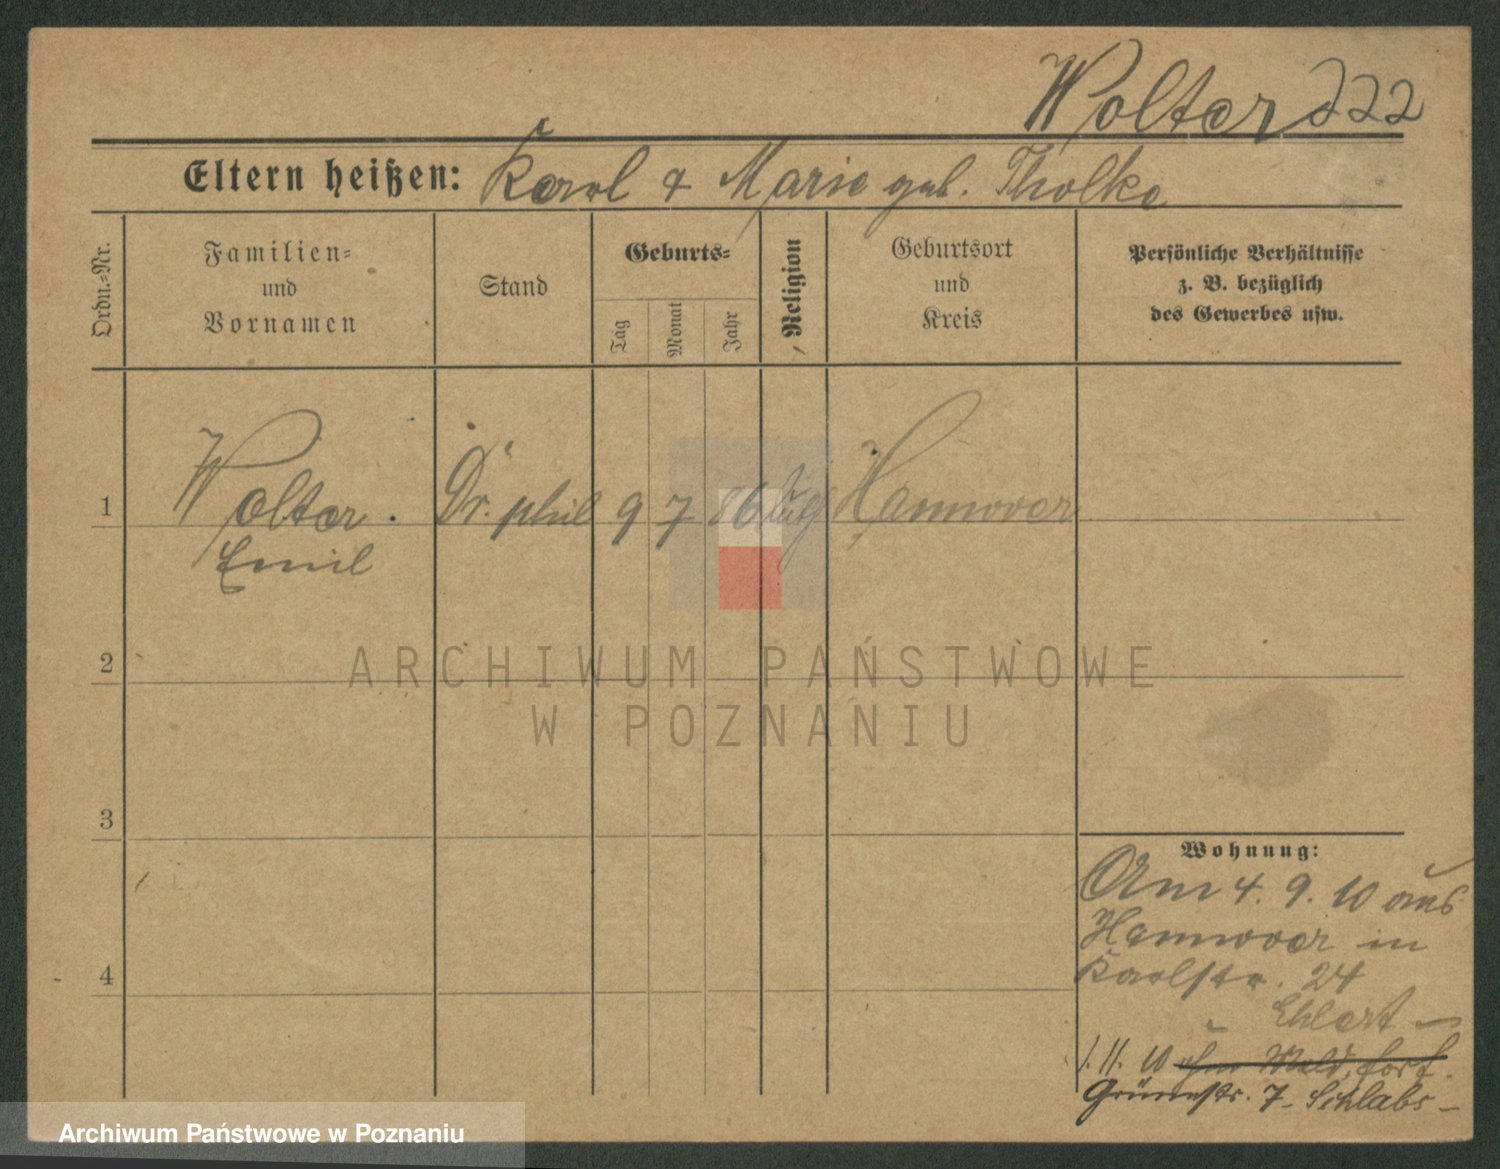 Wolter 222
Eltern heißen: Karl & Marie geb. Tholke
Ordn.=Nr.
Familien=
und
Vornamen
Stand
Geburts=
Tag
Monat
Jahr
Religion
Geburtsort
und
Kreis
Persönliche Verhältnisse
z. B. bezüglich
des Gewerbes usw.
1 Wolter. Dr. phil 9 7 86 Hannover
Emil
2
ARCHIWUM PAŃSTWOWE
W POZNANIU
3
Wohnung:
Am 4. 9. 10 aus
Hannover in
4
Karlstr. 24
Ehlert
1. 11. 10 Meld. fort.
Grünestr. 7 - Schlabs -
Archiwum Państwowe w Poznaniu